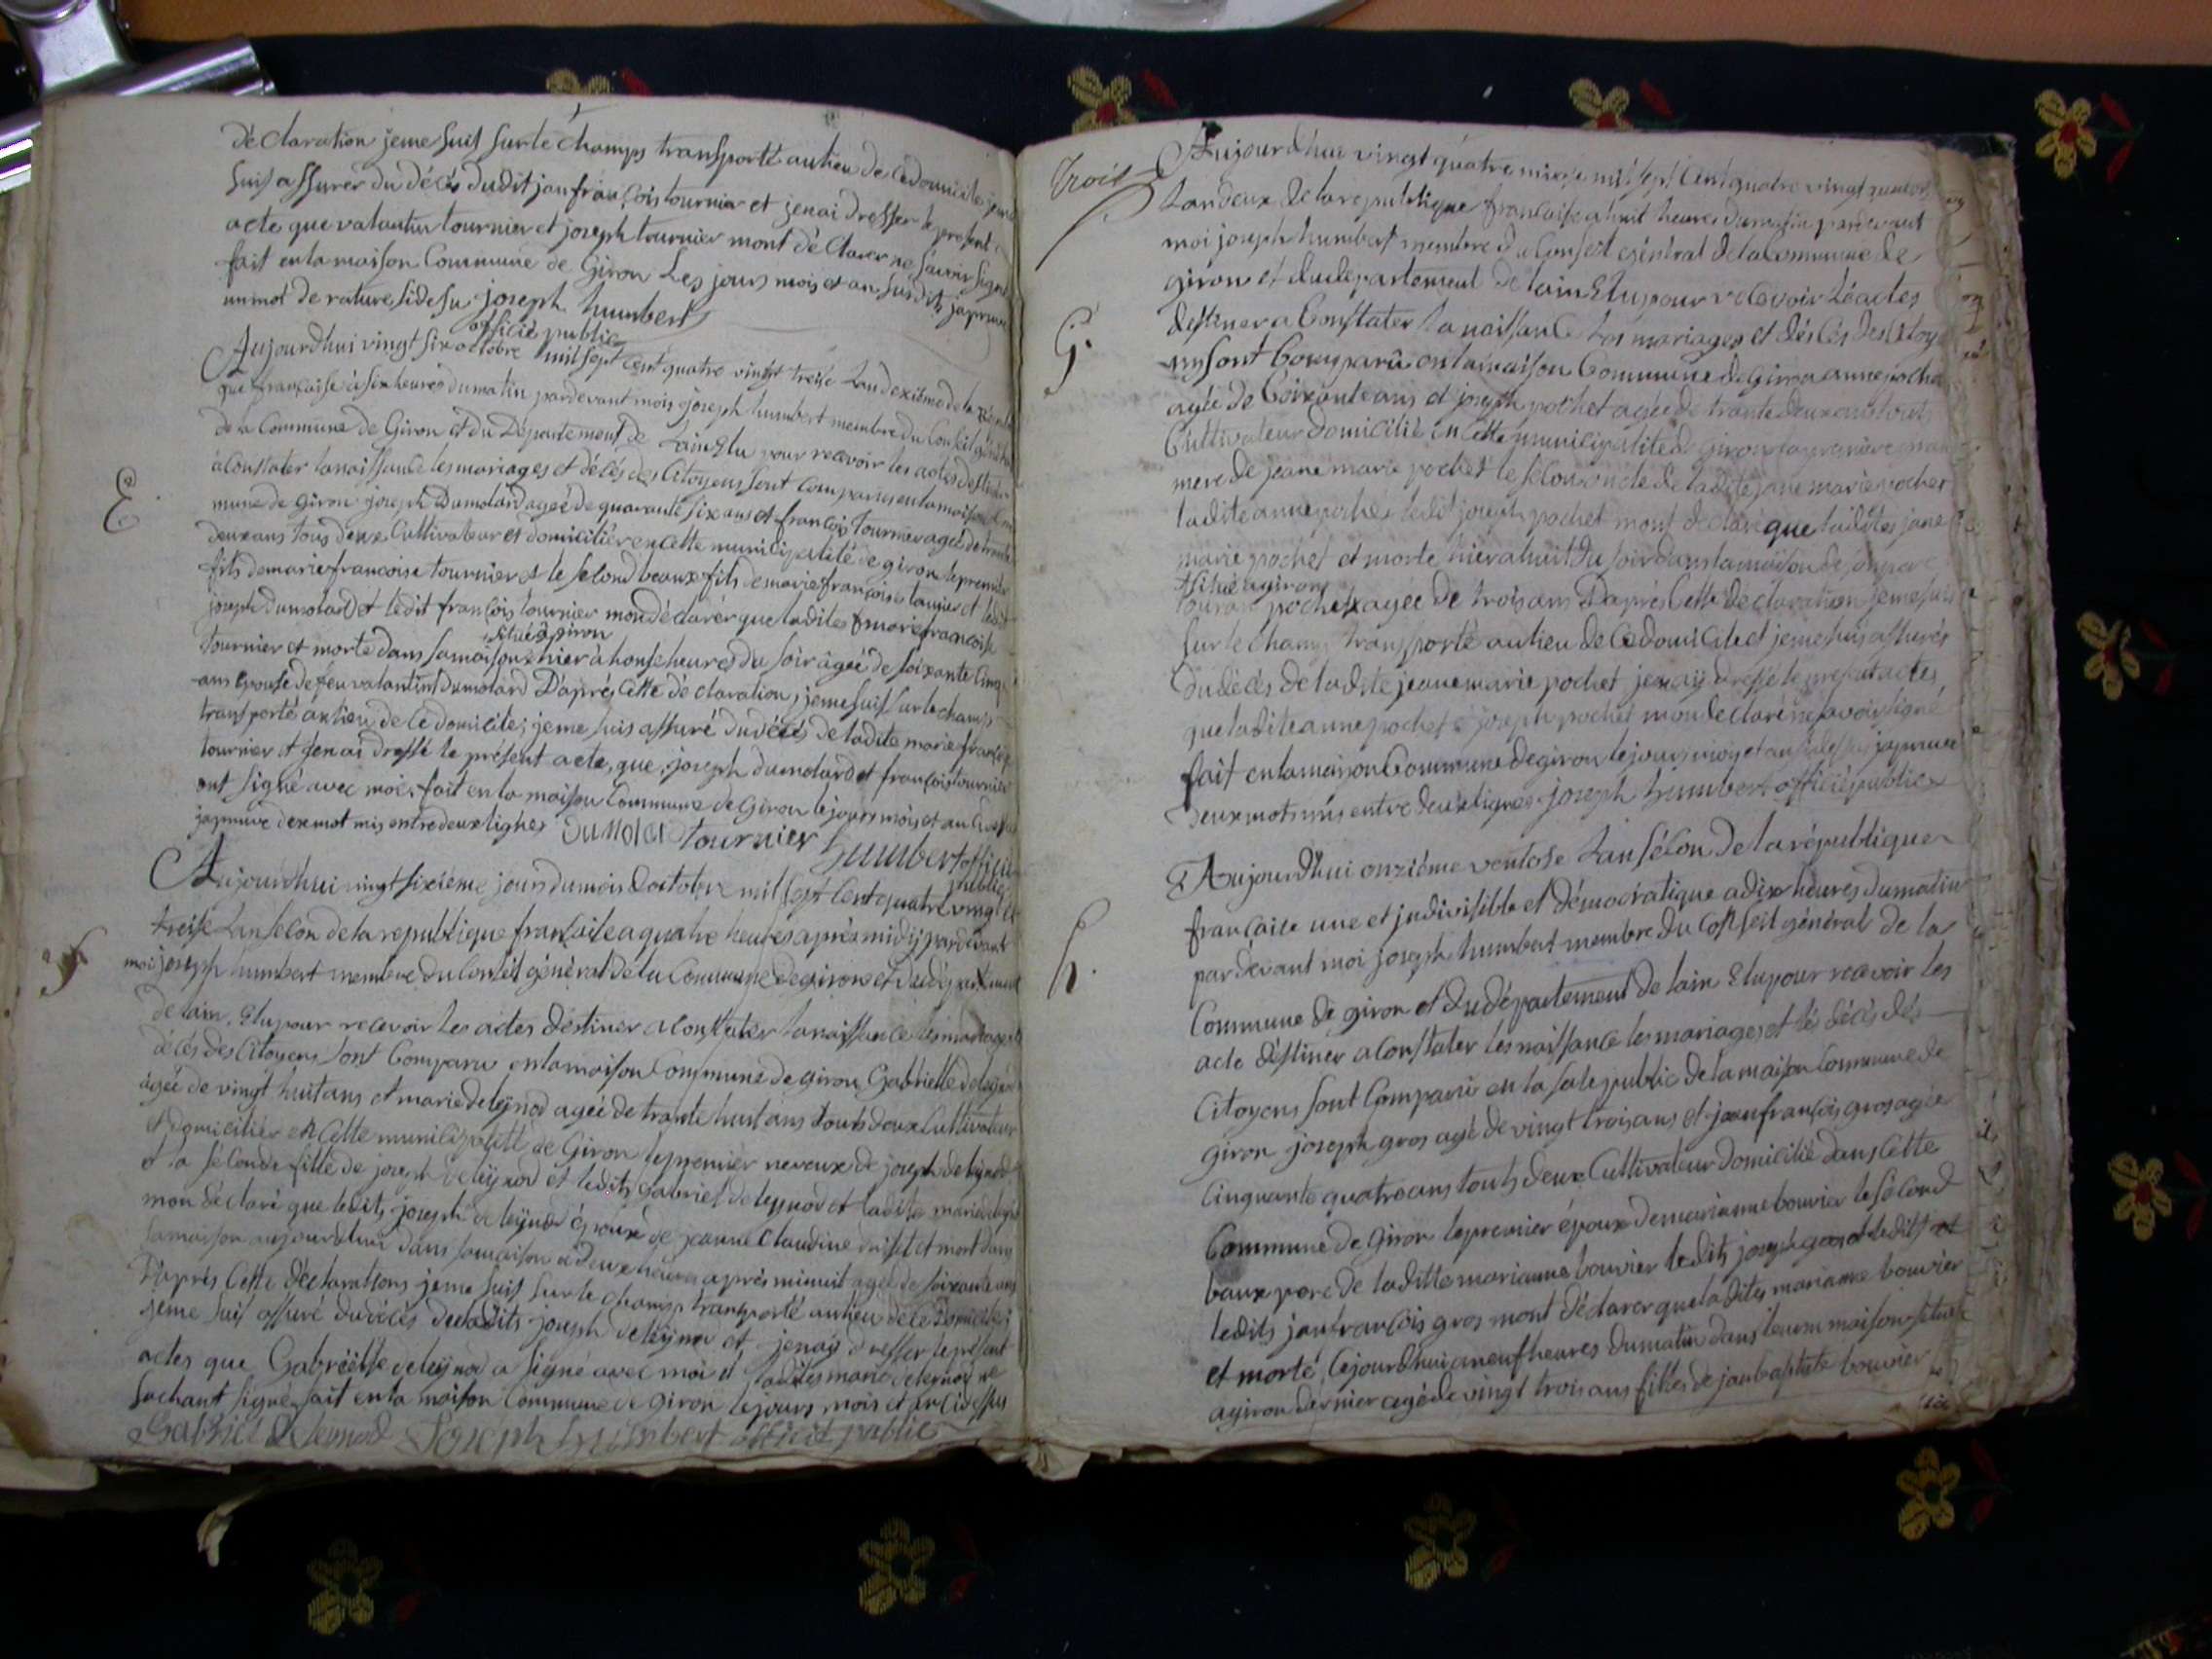 déclaration jeme suis sur le champs transporté au lieu de ce domicile jeme
suis assurér du décés dudit jan françois tournier et jenai dresser le present
acte que valantin tournier et joseph tournier mont déclarer ne savoir signé
fait en la maison Commune de Giron Les jours mois et an susdits japruve
un mot de rature sidesu joseph humbert
officié public
Aujourdhui vingt six octobre mil sept cent quatre vingt treise Lan dexiéme de la Répub
que française à six heures du matin pardevant mois joseph humbert membre du Conseil général
de la Commune de Giron et du Département de Lain Elu pour recevoir les actes destiner
à Constater la naissance les mariages et décés des Citoyens sont comparus en la maison Com
E.
mune de Giron joseph Dumolard ageé de quarante six ans et françois Tournier agée de trante
deux ans tous deux Cultivateur et domiciliér en cette municipalité de giron le premier
fils de marie françoise tournier et le second beaux fils de marie françoise tournier et ledit
joseph dumolard et ledit françois tournier mon déclarér que ladites marie françoise
situé à giron
tournier et morte dans sa maison hier à honse heures du soir âgeé de soixante cinq
ans Epouse de feu valantint Dumolard D'aprés Cette déclaration, jeme suis sur le champs
transporté au lieu de ce domicile; jeme suis assuré du décés de ladite marie françois
tournier et jenai dressé le présent acte, que, joseph dumolard et françois tournier
ont signé avec moi. fait en la maison Commune de Giron le jours mois et an Susd
japruve dexmot mis entre deux lighes Dumolard tournier humbert officié
public
Aujourdhui vingt sixiéme jours du mois doctobre mil sept Cent quatre vingt
treise Lan selon de la republique française a quatre heures aprés midij pardevant
f
moi joseph humbert membre du Conseil général de la Commune de giron et du département
de lain, Elu pour recevoir les actes déstiner a constater la naissance les mariages
décés des Citoyens sont Comparu en la maison Commune de giron Gabrielle deleynod
âgée de vingt huit ans et marie deleynod ageé de trante huit ans touts deux Cultivateur
et domiciliér en Cette municipalité de Giron le premier neveux de joseph deleynod
et la séconde fille de joseph deleynod et ledits Gabriel deleynod et ladite marie deleynod
mon déclaré que ledits joseph deleynod époux de jeanne Claudine et mort dans
sa maison aujourdhui dans sa maison a deux heures aprés minuit agée de soixante ans
D'aprés Cette déclarations jeme suis sur le champs transporté au lieu de ce Domicile;
jeme suis assuré du décés dudits joseph deleynod et jenay dresser le présent
actes que Gabriélle deleynod a signé avec moi et ladites marie deleynod ne
sachant signé fait en la maison Commune de giron le jours mois et an ci dessus
Gabriel deleynod Joseph humbert officié public
Trois
Aujourd'hui vingt quatre mil sept Cent quatre vingt
Lan deux de la republique française a huit heures du matin pardevant
moi joseph humbert membre du Conseil général de la Commune de
giron et du departement de lain Elu pour recevoir lé actes
G.
déstiner a Constater la naissance Les mariages et décés des Citoy
ens sont Comparû en la maison Commune de giron anne pochet
agée de Coixante ans et joseph pochet agée de trante deux ans touts
Cultivateur domicilié en cette municipalité de giron la premiere gran
mere de jeane marie pochet le second oncle de ladite jane marie pochet
ladite anne pochet ledit joseph pochet mont declaré que ladites jane
marie pochet et morte hier a huit du soir dans la maison de son pere
situé a giron
pochet agée de trois ans D'aprés Cette déclaration jeme suis
sur le champ transporté au lieu de Ce domicile et jeme suis assurés
du décés de ladite jeane marie pochet jenay dressé le present actes
que ladite anne pochet joseph pochet mon declaré ne savoir signé
fait en la maison Commune de giron le jours mois et an sidessus japruve
deux mots mis entre deux lignes joseph humbert officié public
Aujourd'hui onziéme ventose Lan sélon de la république
française une et indivisible et démocratique a dix heures du matin
par dévant moi joseph humbert membre du Conseil général de la
h.
Commune de giron et du département de lain Elu pour recevoir les
acte déstiner a Constater les naissance les mariages et lés décés dés
Citoyens sont Comparu en la sale public de la maison Commune de
giron joseph gros agé de vingt trois ans et jean françois gros agée
Cinquante quatre ans touts deux Cultivateur domicilié dans Cette
Commune de Giron le premier époux de marianne bouvier le sécond
baux pere de laditte marianne bouvier ledits joseph gros et ledits
ledits jan françois gros mont déclarer que ladites marianne bouvier
et morte, Cejourdhui a neuf heures du matin dans leurs maison située
a giron dernier agé de vingt trois ans filles de jan baptiste bouvier